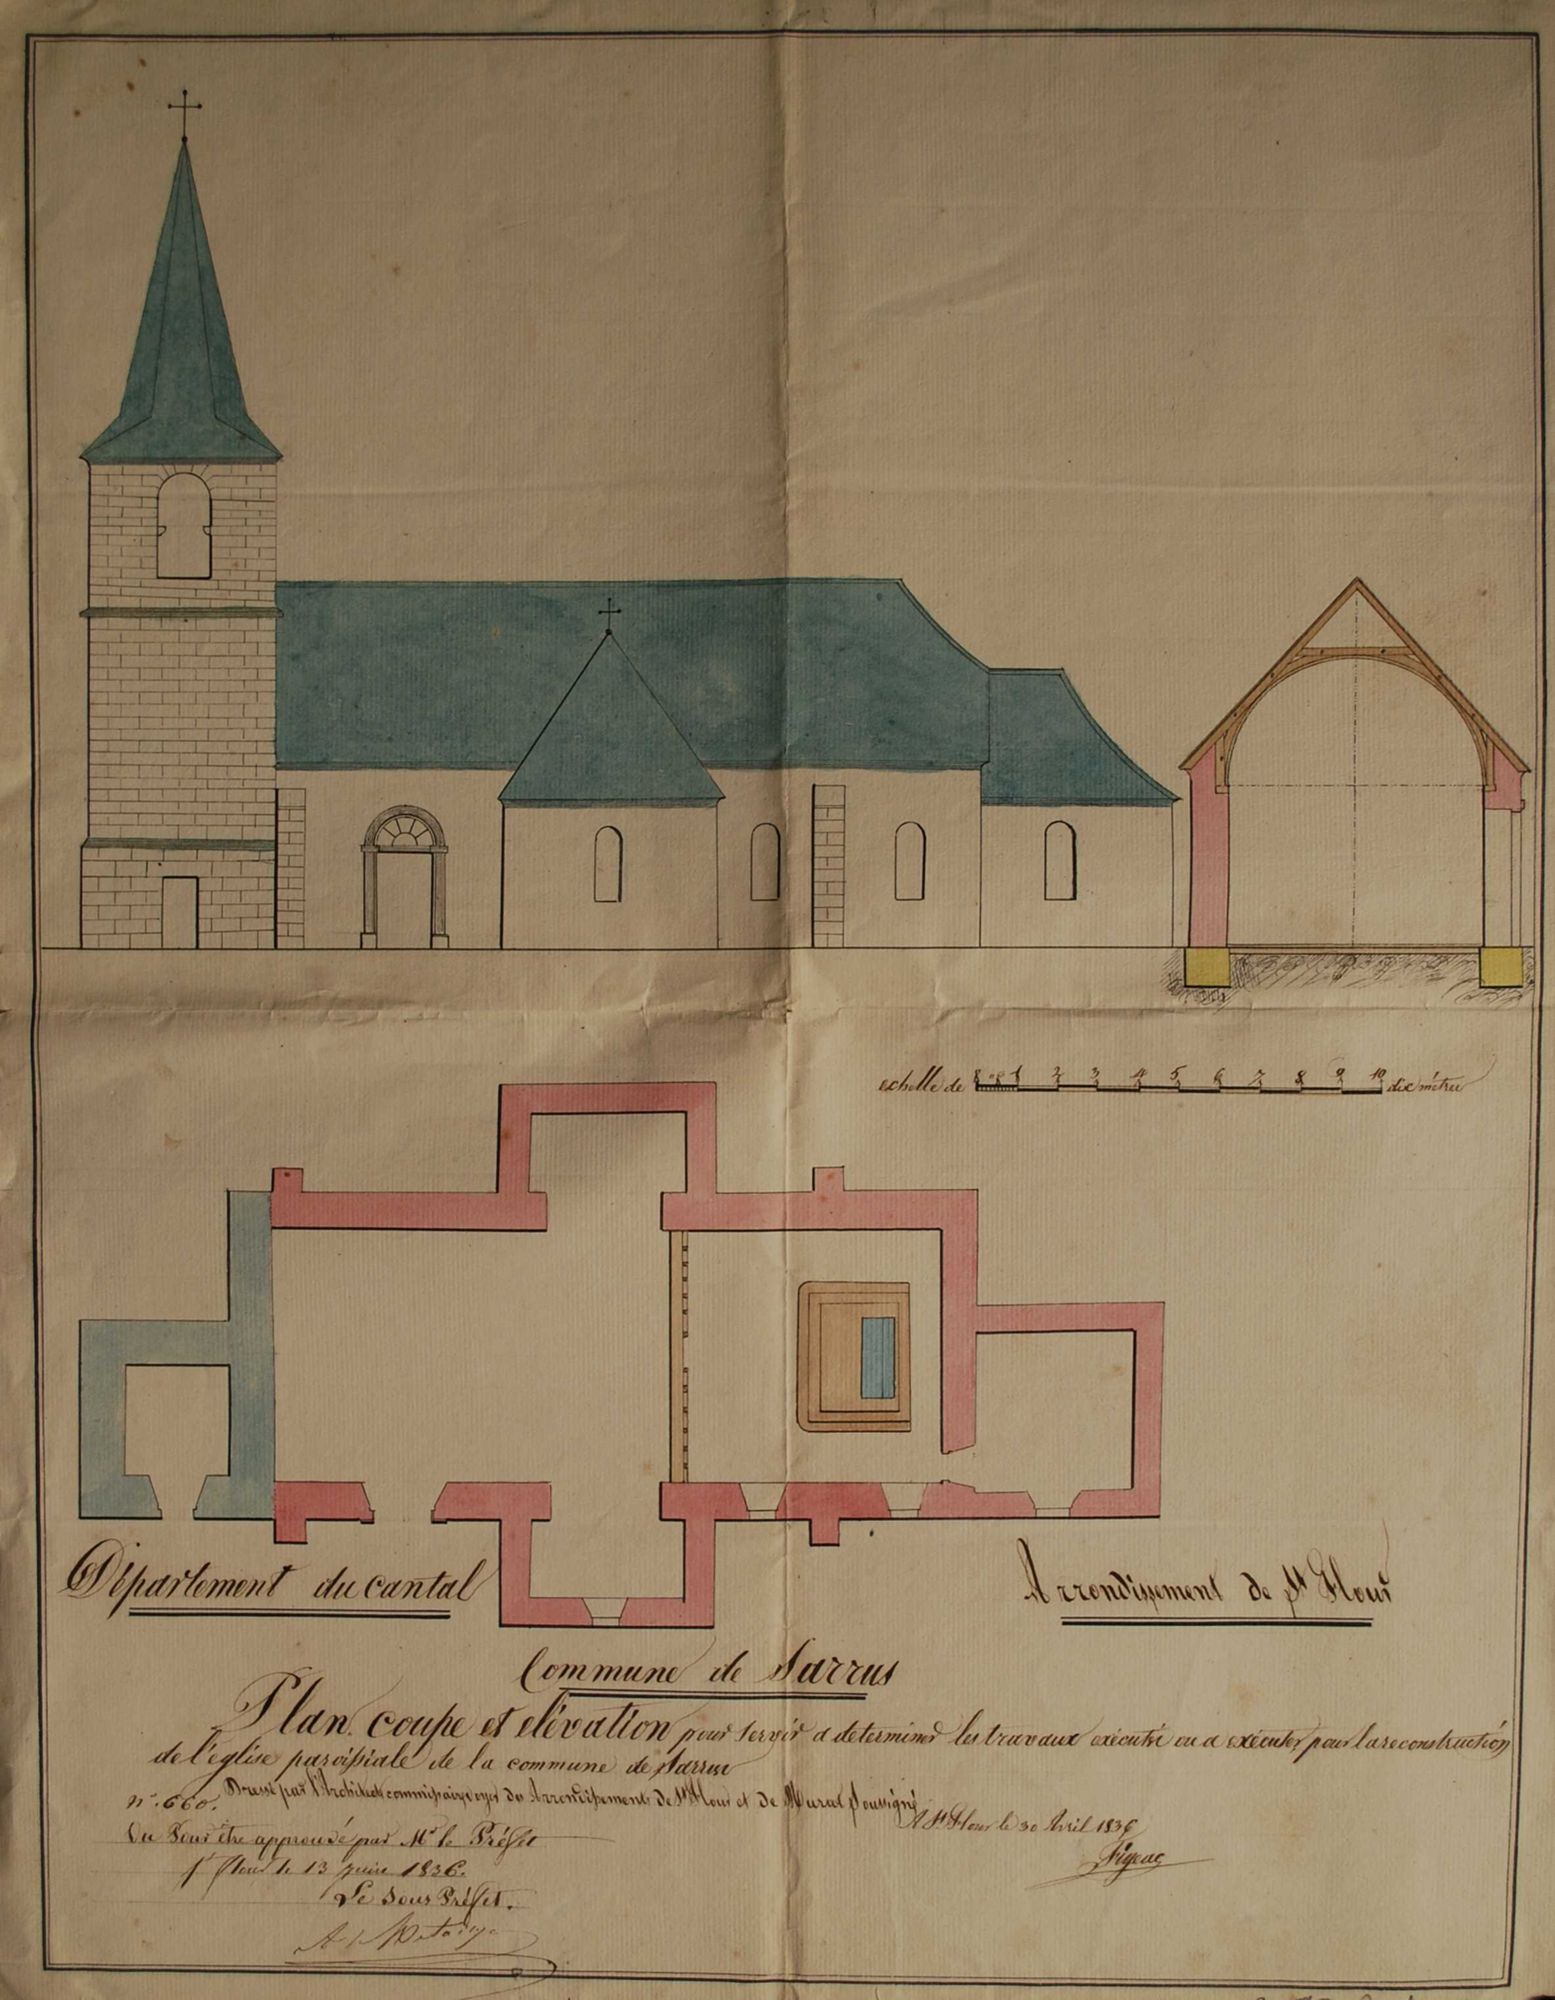 echelle de 1 2 3 4 5 6 7 8 9 10 dix mètres
Département du cantal
Arrondissement de St Flour
Commune de Sarrus
Plan, coupe et elévation pour servir a determiner les travaux exécutés ou a exécuter pour la reconstruction
de l'église paroissiale de la commune de Sarrus
Dressé par l'Architecte commissaire voyer des Arrondissements de St Flour et de Murat soussigné
n°. 660.
A St Flour le 30 Avril 1836
Vu Pour être approuvé par Mr le Préfet
Figeac
St flour le 13 juin 1836.
Le Sous Préfet.